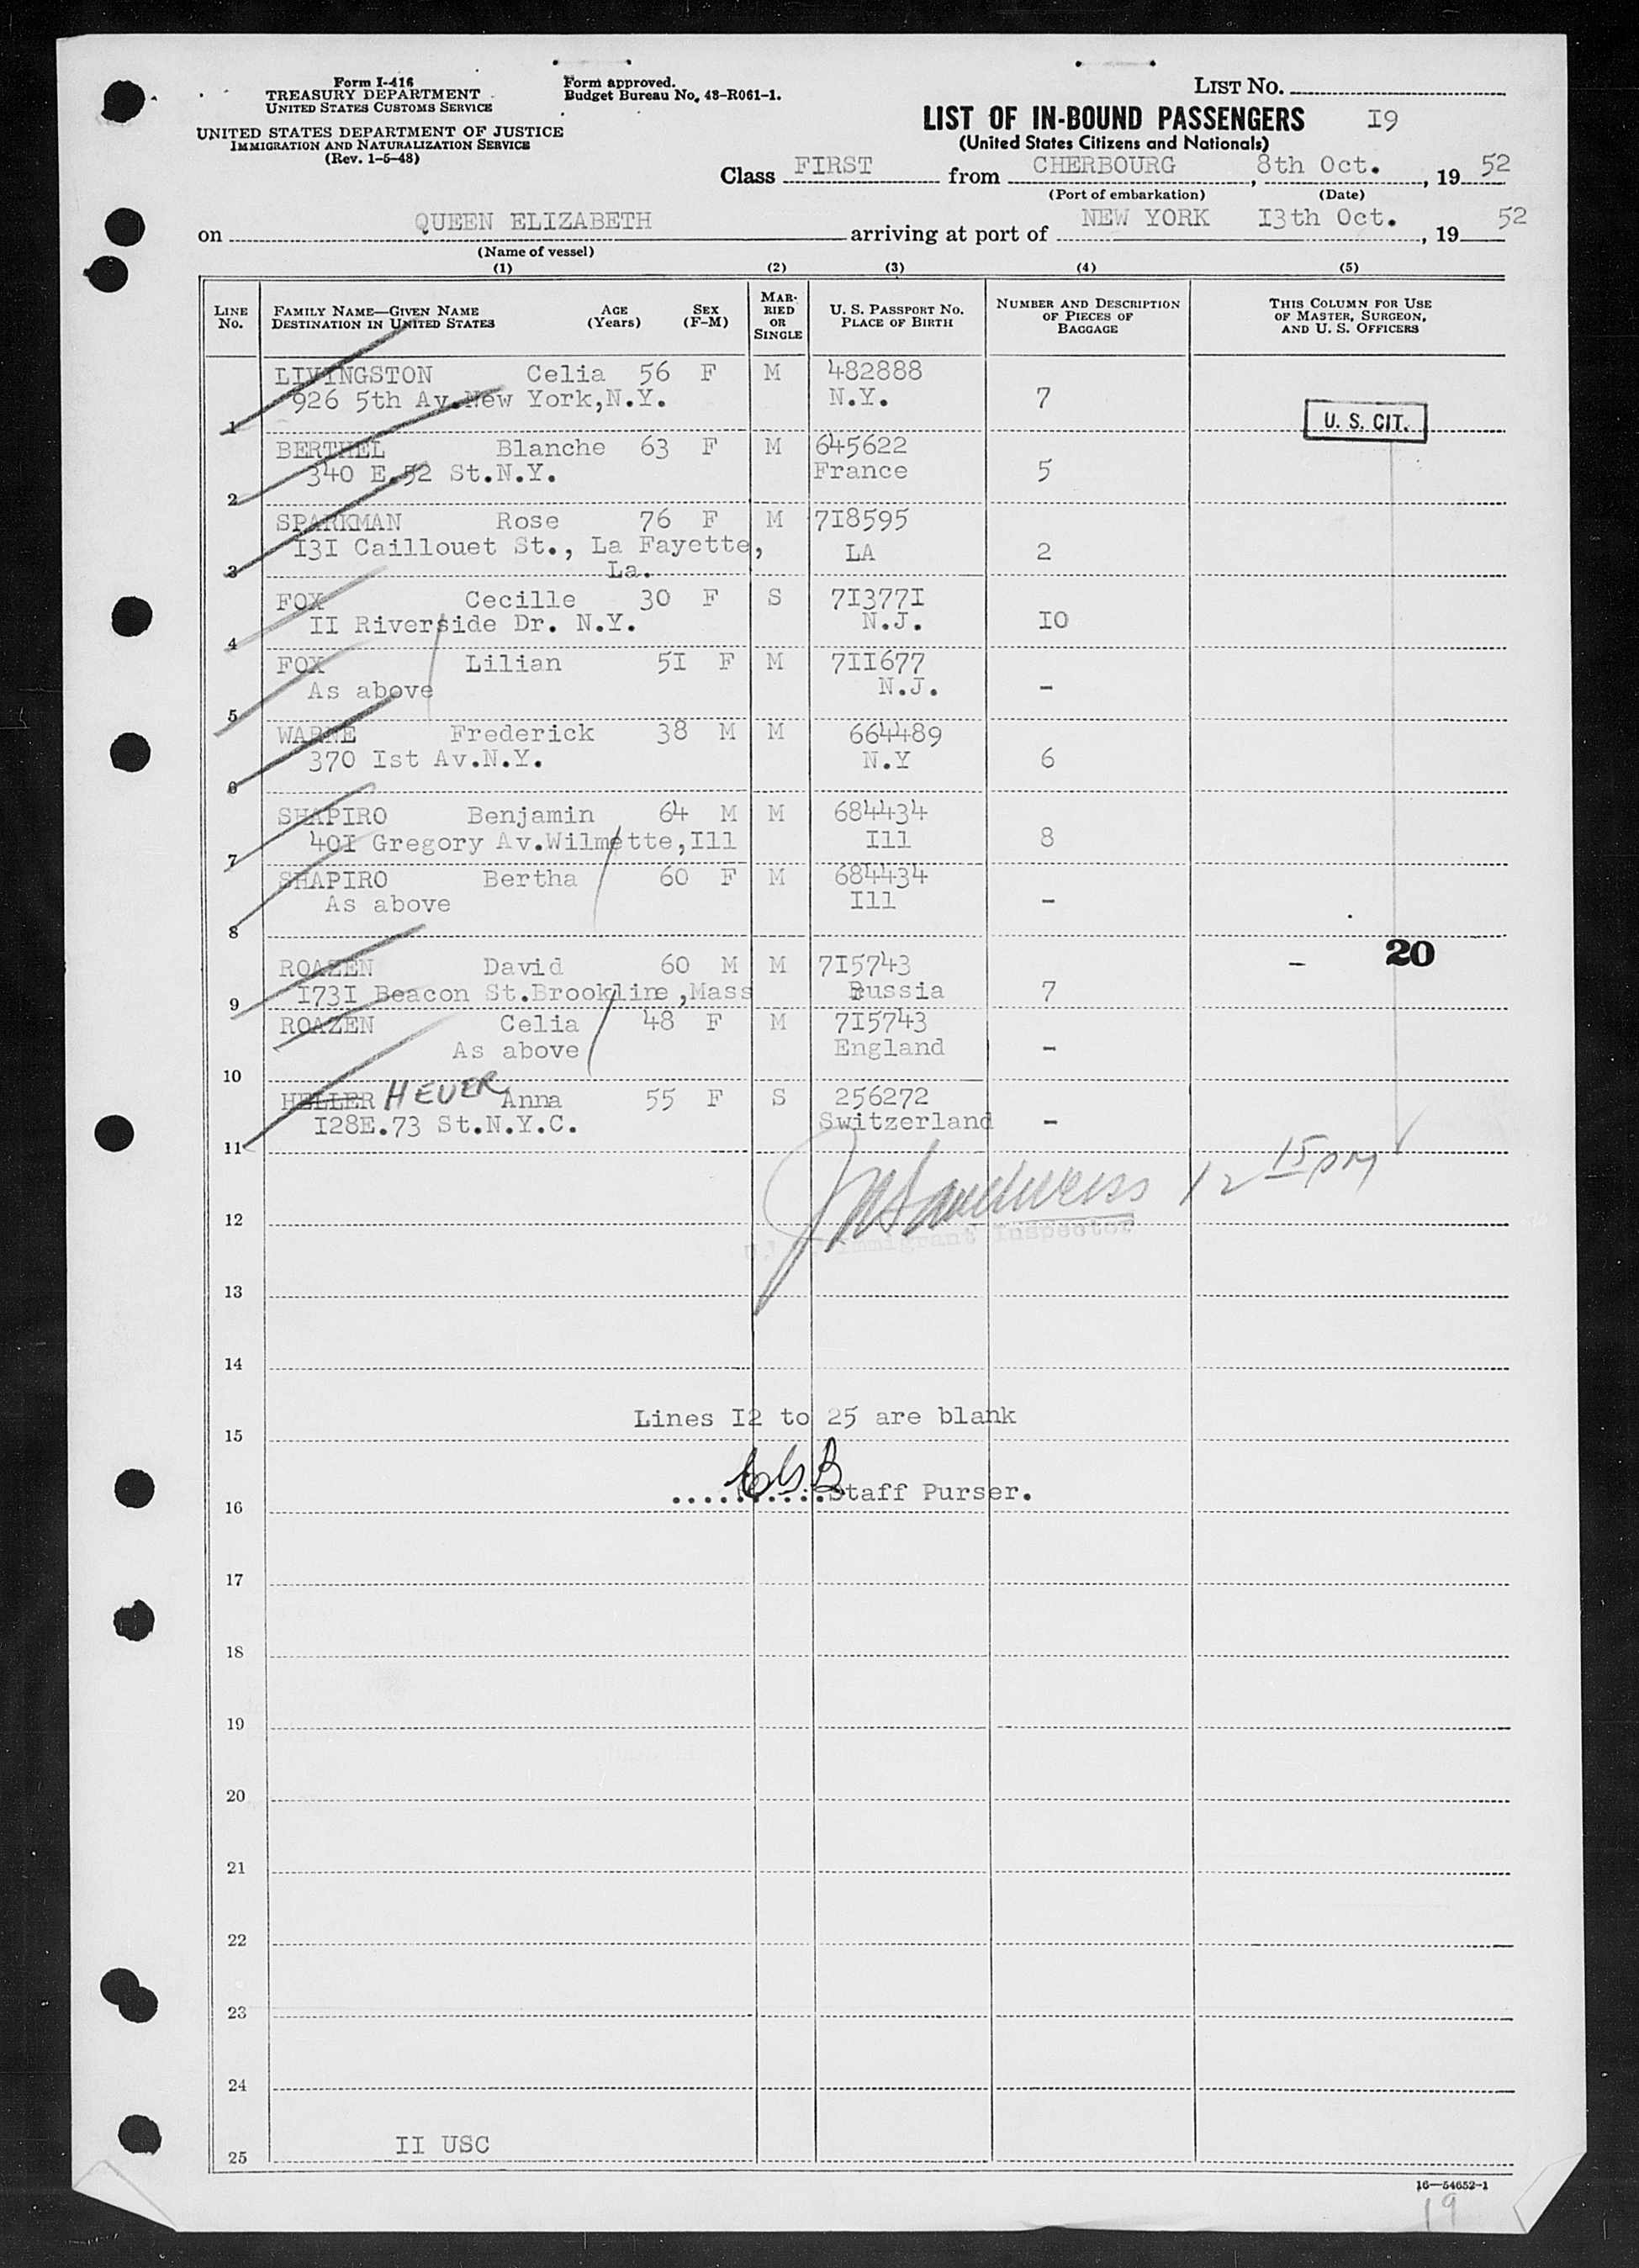 Form I-416
TREASURY DEPARTMENT
UNITED STATES CUSTOMS SERVICE
UNITED STATES DEPARTMENT OF JUSTICE
IMMIGRATION AND NATURALIZATION SERVICE
(Rev. 1-5-48)
Form approved.
Budget Bureau No. 43-R061-1.
LIST NO.
LIST OF IN-BOUND PASSENGERS I9
(United States Citizens and Nationals)
Class FIRST from CHERBOURG, 8th Oct., 19 52
(Port of embarkation) (Date)
on QUEEN ELIZABETH arriving at port of NEW YORK I3th Oct., 19 52
(Name of vessel)
(1) (2) (3) (4) (5)
LINE No. FAMILY NAME—GIVEN NAME DESTINATION IN UNITED STATES AGE (Years) SEX (F-M) MARRIED OR SINGLE U. S. PASSPORT NO. PLACE OF BIRTH NUMBER AND DESCRIPTION OF PIECES OF BAGGAGE THIS COLUMN FOR USE OF MASTER, SURGEON, AND U. S. OFFICERS
LIVINGSTON Celia 56 F M 482888
1 926 5th Av.New York,N.Y. N.Y. 7 U. S. CIT.
BERTHEL Blanche 63 F M 645622
2 340 E.52 St.N.Y. France 5
SPARKMAN Rose 76 F M 7I8595
I3I Caillouet St., La Fayette, LA 2
3 La.
FOX Cecille 30 F S 7I377I
4 II Riverside Dr. N.Y. N.J. IO
FOX Lilian 5I F M 7II677
5 As above N.J. -
WARNE Frederick 38 M M 664489
6 370 Ist Av.N.Y. N.Y 6
SHAPIRO Benjamin 64 M M 684434
7 40I Gregory Av.Wilmette,Ill Ill 8
SHAPIRO Bertha 60 F M 684434
8 As above Ill -
ROAZEN David 60 M M 7I5743 - 20
9 I73I Beacon St.Brookline,Mass Russia 7
ROAZEN Celia 48 F M 7I5743
10 As above England -
HELLER HEUER Anna 55 F S 256272
11 I28E.73 St.N.Y.C. Switzerland -
12 15 PM
12 Immigrant Inspector
13
14
Lines I2 to 25 are blank
15
16 ..........Staff Purser.
17
18
19
20
21
22
23
24
25 II USC
16—54652-1
19